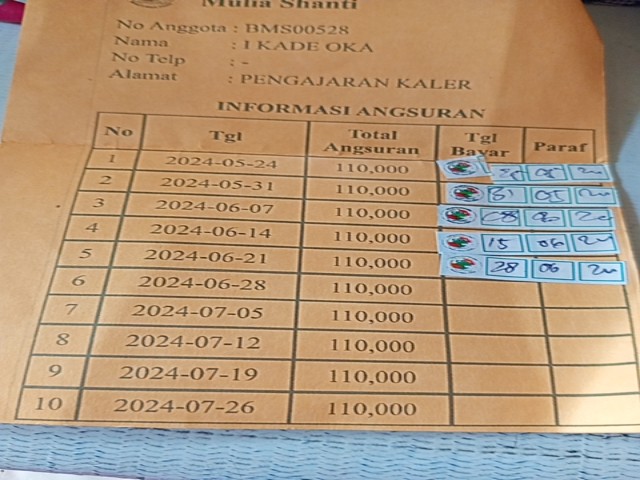 Mulia Shanti
No Anggota : BMS00528
Nama : I KADE OKA
No Telp : -
Alamat : PENGAJARAN KALER
INFORMASI ANGSURAN
No Tgl Total Angsuran Tgl Bayar Paraf
1 2024-05-24 110,000 05 24
2 2024-05-31 110,000 31 05 24
3 2024-06-07 110,000 08 06 24
4 2024-06-14 110,000 15 06 24
5 2024-06-21 110,000 28 06 24
6 2024-06-28 110,000
7 2024-07-05 110,000
8 2024-07-12 110,000
9 2024-07-19 110,000
10 2024-07-26 110,000